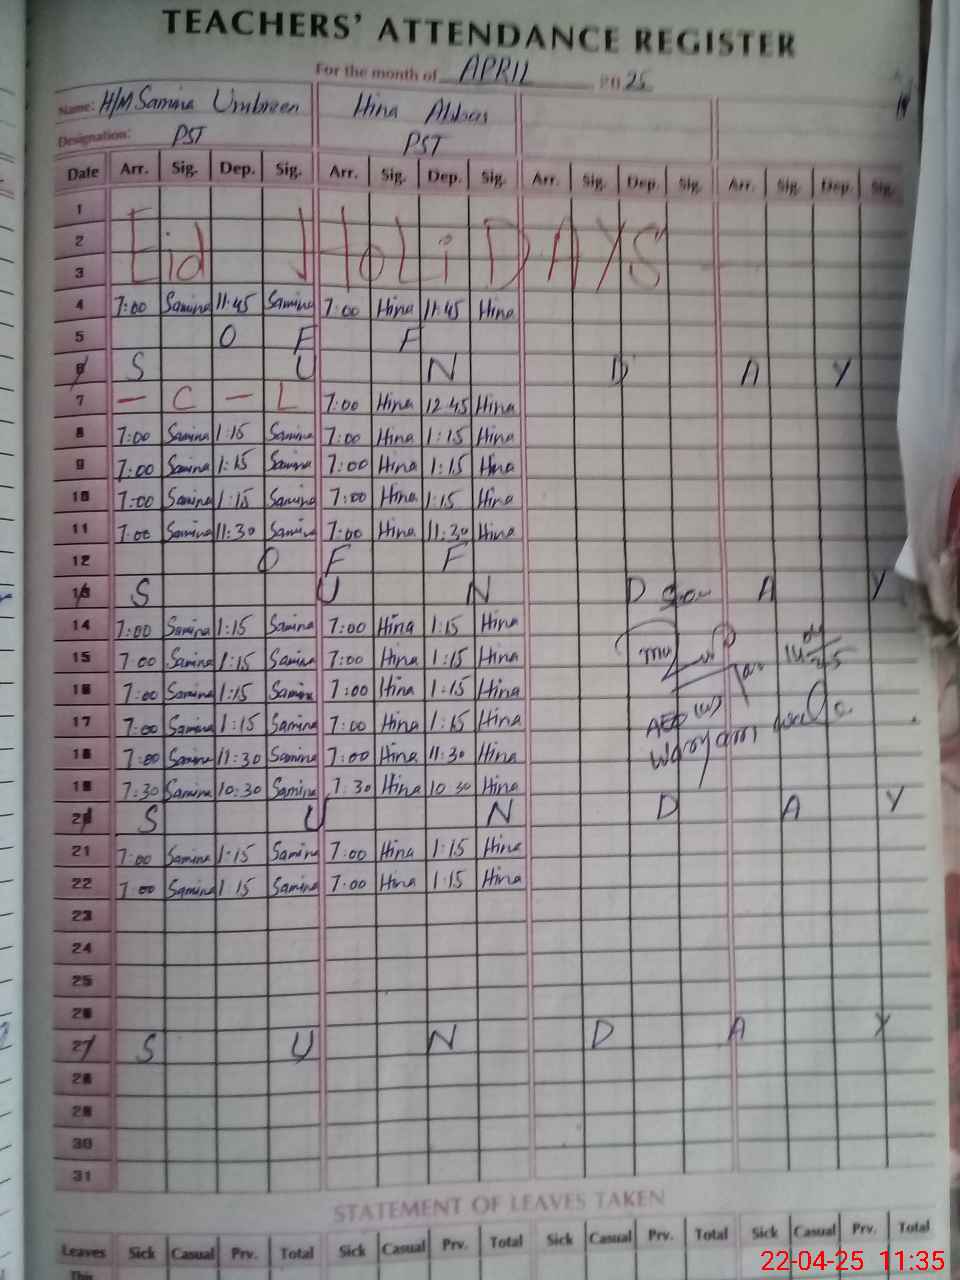 TEACHERS' ATTENDANCE REGISTER
For the month of APRIL 2025
Name: H/M Samina Umbreen Hina Abbas
Designation: PST PST
Date Arr. Sig. Dep. Sig. Arr. Sig. Dep. Sig. Arr. Sig. Dep. Sig. Arr. Sig. Dep. Sig.
1
2 Eid HoLiDAYS
3
4 7:00 Samina 11:45 Samina 7:00 Hina 11:45 Hina
5 O F F
6 S U N D A Y
7 — C — L 7:00 Hina 12:45 Hina
8 7:00 Samina 1:15 Samina 7:00 Hina 1:15 Hina
9 7:00 Samina 1:15 Samina 7:00 Hina 1:15 Hina
10 7:00 Samina 1:15 Samina 7:00 Hina 1:15 Hina
11 7:00 Samina 11:30 Samina 7:00 Hina 11:30 Hina
12 O F F
13 S U N D A Y
14 7:00 Samina 1:15 Samina 7:00 Hina 1:15 Hina
15 7:00 Samina 1:15 Samina 7:00 Hina 1:15 Hina
16 7:00 Samina 1:15 Samina 7:00 Hina 1:15 Hina
17 7:00 Samina 1:15 Samina 7:00 Hina 1:15 Hina AEO (W)
18 7:00 Samina 11:30 Samina 7:00 Hina 11:30 Hina Waryam
19 7:30 Samina 10:30 Samina 7:30 Hina 10:30 Hina
20 S U N D A Y
21 7:00 Samina 1:15 Samina 7:00 Hina 1:15 Hina
22 7:00 Samina 1:15 Samina 7:00 Hina 1:15 Hina
23
24
25
26
27 S U N D A Y
28
29
30
31
STATEMENT OF LEAVES TAKEN
Leaves Sick Casual Prv. Total Sick Casual Prv. Total Sick Casual Prv. Total Sick Casual Prv. Total
This
22-04-25 11:35